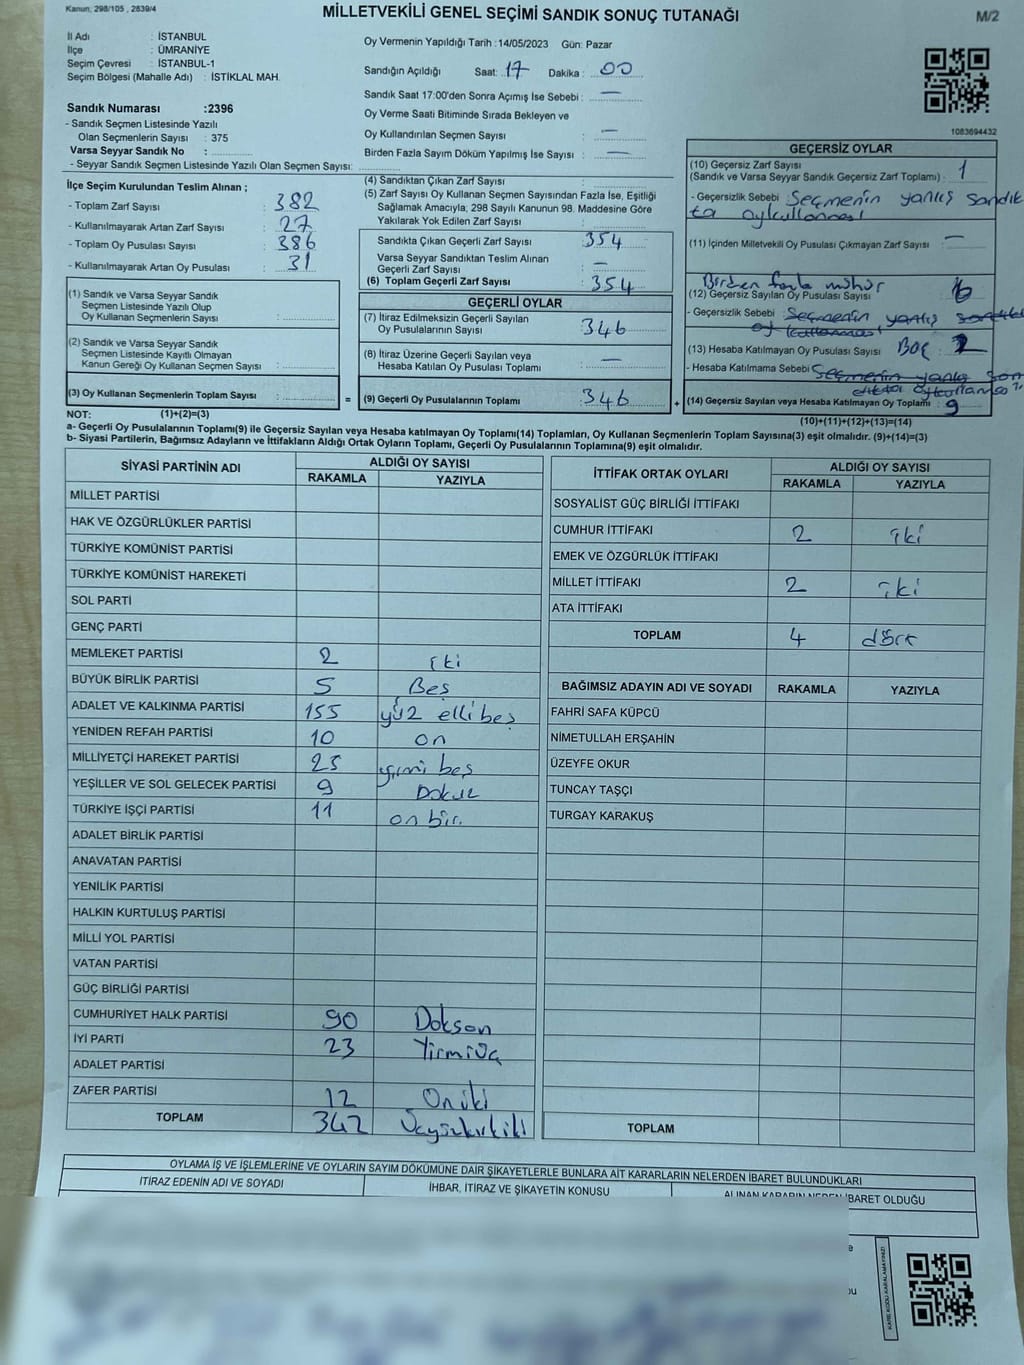 Kanun; 298/105 , 2839/4
MİLLETVEKİLİ GENEL SEÇİMİ SANDIK SONUÇ TUTANAĞI
M/2
İl Adı : İSTANBUL
İlçe : ÜMRANİYE
Seçim Çevresi : İSTANBUL-1
Seçim Bölgesi (Mahalle Adı) : İSTİKLAL MAH.
Sandık Numarası :2396
- Sandık Seçmen Listesinde Yazılı
Olan Seçmenlerin Sayısı : 375
Varsa Seyyar Sandık No :
- Seyyar Sandık Seçmen Listesinde Yazılı Olan Seçmen Sayısı:
Oy Vermenin Yapıldığı Tarih : 14/05/2023 Gün: Pazar
Sandığın Açıldığı Saat: 17 Dakika : 00
Sandık Saat 17:00'den Sonra Açımış İse Sebebi : —
Oy Verme Saati Bitiminde Sırada Bekleyen ve
Oy Kullandırılan Seçmen Sayısı : —
Birden Fazla Sayım Döküm Yapılmış İse Sayısı : —
1083694432
İlçe Seçim Kurulundan Teslim Alınan ;
- Toplam Zarf Sayısı : 382
- Kullanılmayarak Artan Zarf Sayısı : 27
- Toplam Oy Pusulası Sayısı : 386
- Kullanılmayarak Artan Oy Pusulası : 31
(1) Sandık ve Varsa Seyyar Sandık
Seçmen Listesinde Yazılı Olup
Oy Kullanan Seçmenlerin Sayısı :
(2) Sandık ve Varsa Seyyar Sandık
Seçmen Listesinde Kayıtlı Olmayan
Kanun Gereği Oy Kullanan Seçmen Sayısı :
(3) Oy Kullanan Seçmenlerin Toplam Sayısı :
=
(4) Sandıktan Çıkan Zarf Sayısı :
(5) Zarf Sayısı Oy Kullanan Seçmen Sayısından Fazla İse, Eşitliği
Sağlamak Amacıyla; 298 Sayılı Kanunun 98. Maddesine Göre
Yakılarak Yok Edilen Zarf Sayısı :
Sandıkta Çıkan Geçerli Zarf Sayısı : 354
Varsa Seyyar Sandıktan Teslim Alınan
Geçerli Zarf Sayısı : —
(6) Toplam Geçerli Zarf Sayısı : 354
GEÇERLİ OYLAR
(7) İtiraz Edilmeksizin Geçerli Sayılan
Oy Pusulalarının Sayısı : 346
(8) İtiraz Üzerine Geçerli Sayılan veya
Hesaba Katılan Oy Pusulası Toplamı : —
(9) Geçerli Oy Pusulalarının Toplamı : 346
+
GEÇERSİZ OYLAR
(10) Geçersiz Zarf Sayısı
(Sandık ve Varsa Seyyar Sandık Geçersiz Zarf Toplamı) : 1
- Geçersizlik Sebebi : Seçmenin yanlış sandık
ta oykullanması
(11) İçinden Milletvekili Oy Pusulası Çıkmayan Zarf Sayısı : —
Birden fazla mühür
(12) Geçersiz Sayılan Oy Pusulası Sayısı : 6
- Geçersizlik Sebebi : Seçmenin yanlış sandıkta
oy kullanması
(13) Hesaba Katılmayan Oy Pusulası Sayısı : Boş 2
- Hesaba Katılmama Sebebi : Seçmenin yanlış san
dıkta oykullanması
(14) Geçersiz Sayılan veya Hesaba Katılmayan Oy Toplamı : 9
(10)+(11)+(12)+(13)=(14)
NOT: (1)+(2)=(3)
a- Geçerli Oy Pusulalarının Toplamı(9) ile Geçersiz Sayılan veya Hesaba katılmayan Oy Toplamı(14) Toplamları, Oy Kullanan Seçmenlerin Toplam Sayısına(3) eşit olmalıdır. (9)+(14)=(3)
b- Siyasi Partilerin, Bağımsız Adayların ve İttifakların Aldığı Ortak Oyların Toplamı, Geçerli Oy Pusulalarının Toplamına(9) eşit olmalıdır.
SİYASİ PARTİNİN ADI ALDIĞI OY SAYISI
RAKAMLA YAZIYLA
MİLLET PARTİSİ
HAK VE ÖZGÜRLÜKLER PARTİSİ
TÜRKİYE KOMÜNİST PARTİSİ
TÜRKİYE KOMÜNİST HAREKETİ
SOL PARTİ
GENÇ PARTİ
MEMLEKET PARTİSİ 2 iki
BÜYÜK BİRLİK PARTİSİ 5 Beş
ADALET VE KALKINMA PARTİSİ 155 yüz ellibeş
YENİDEN REFAH PARTİSİ 10 on
MİLLİYETÇİ HAREKET PARTİSİ 25 yirmi beş
YEŞİLLER VE SOL GELECEK PARTİSİ 9 Dokuz
TÜRKİYE İŞÇİ PARTİSİ 11 on bir.
ADALET BİRLİK PARTİSİ
ANAVATAN PARTİSİ
YENİLİK PARTİSİ
HALKIN KURTULUŞ PARTİSİ
MİLLİ YOL PARTİSİ
VATAN PARTİSİ
GÜÇ BİRLİĞİ PARTİSİ
CUMHURİYET HALK PARTİSİ 90 Doksan
İYİ PARTİ 23 Yirmiüç
ADALET PARTİSİ
ZAFER PARTİSİ 12 Oniki
TOPLAM 342 Üçyüzkırkiki
İTTİFAK ORTAK OYLARI ALDIĞI OY SAYISI
RAKAMLA YAZIYLA
SOSYALİST GÜÇ BİRLİĞİ İTTİFAKI
CUMHUR İTTİFAKI 2 iki
EMEK VE ÖZGÜRLÜK İTTİFAKI
MİLLET İTTİFAKI 2 iki
ATA İTTİFAKI
TOPLAM 4 dört
BAĞIMSIZ ADAYIN ADI VE SOYADI RAKAMLA YAZIYLA
FAHRİ SAFA KÜPCÜ
NİMETULLAH ERŞAHİN
ÜZEYFE OKUR
TUNCAY TAŞÇI
TURGAY KARAKUŞ
TOPLAM
OYLAMA İŞ VE İŞLEMLERİNE VE OYLARIN SAYIM DÖKÜMÜNE DAİR ŞİKAYETLERLE BUNLARA AİT KARARLARIN NELERDEN İBARET BULUNDUKLARI
İTİRAZ EDENİN ADI VE SOYADI İHBAR, İTİRAZ VE ŞİKAYETİN KONUSU ALINAN KARARIN NEDEN İBARET OLDUĞU
KARE KODU KARALAMAYINIZ!